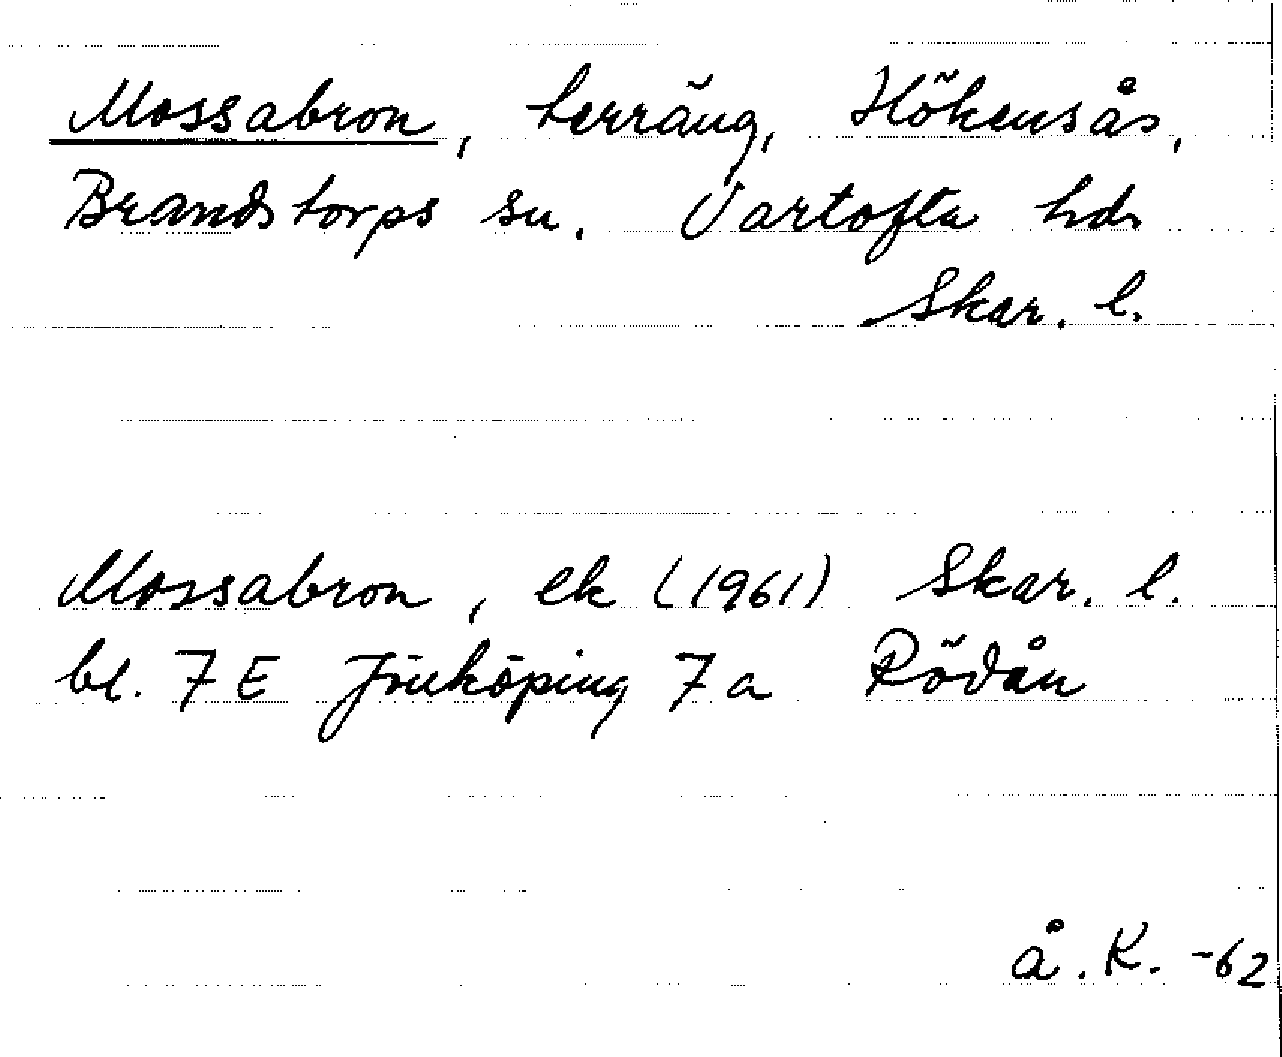 Mossabron, terräng, Hökensås,
Brandstorps sn. Vartofta hds
Skar. l.
Mossabron, ek (1961) Skar. l.
bl. 7 E Jönköping 7a Rödån
Å. K. -62